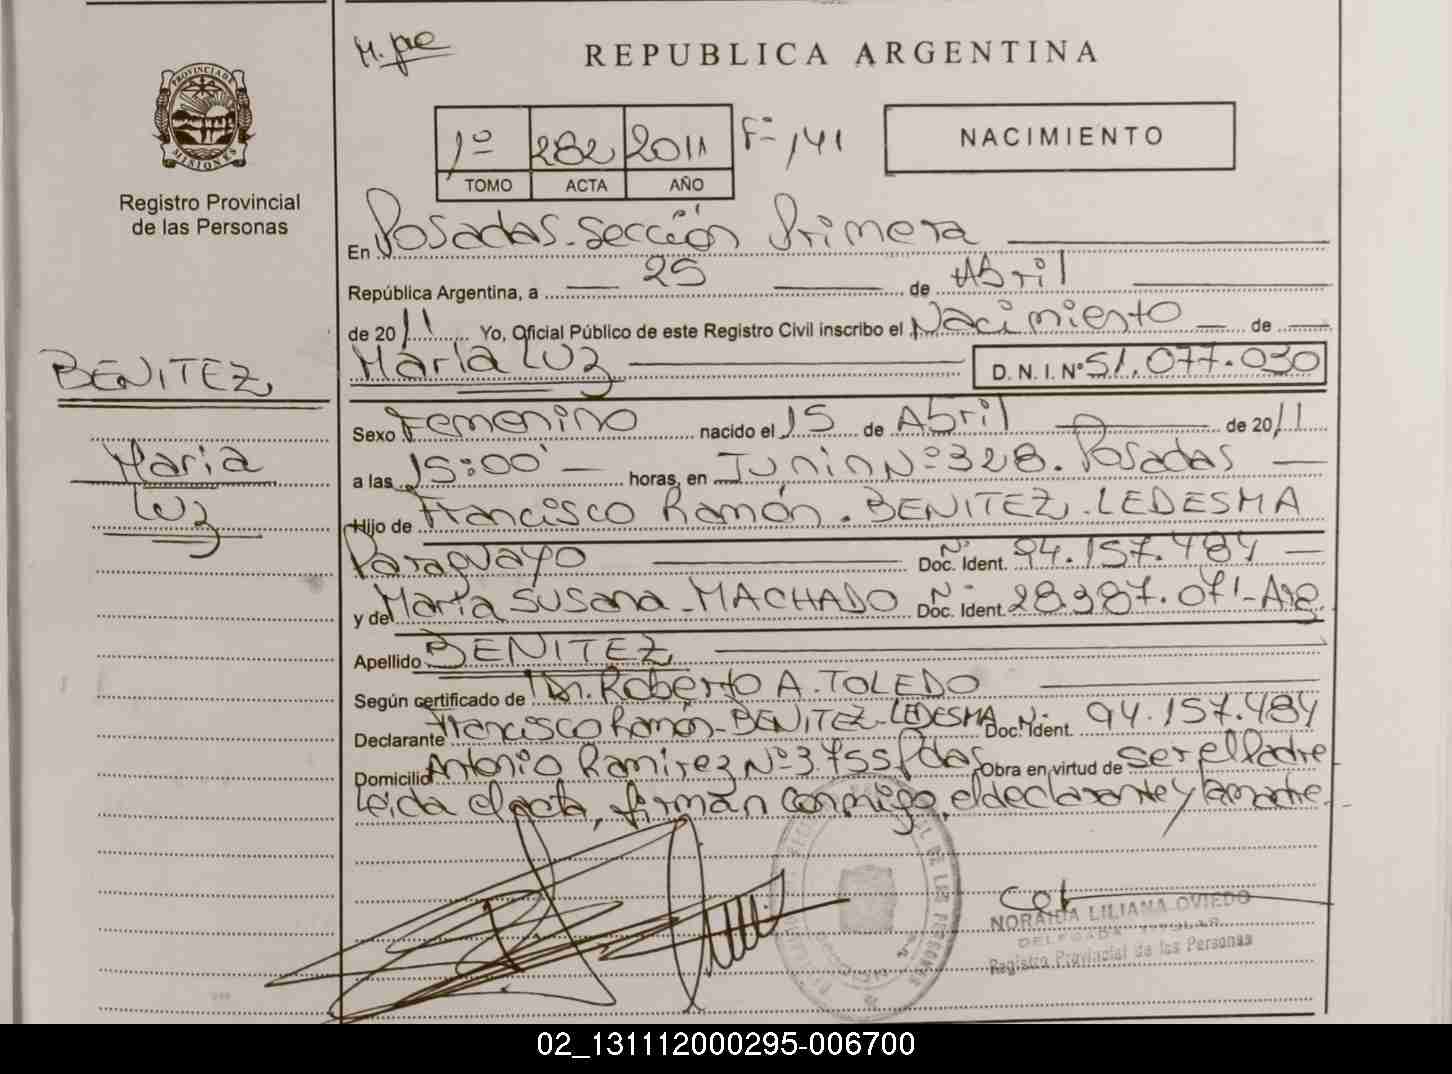 M. pe
REPUBLICA ARGENTINA
PROVINCIA DE MISIONES
Registro Provincial
de las Personas
1º 282 2011 Fº 141
TOMO ACTA AÑO
NACIMIENTO
En Posadas. Sección Primera
República Argentina, a 25 de Abril
de 2011 Yo, Oficial Público de este Registro Civil inscribo el Nacimiento de
María Luz D. N. I. Nº 51.077.030
BENITEZ
Maria
Luz
Sexo Femenino nacido el 15 de Abril de 2011
a las 15:00 horas, en Junin Nº 328. Posadas
Hijo de Francisco Ramón. BENITEZ. LEDESMA
Paraguayo Doc. Ident. Nº 94.157.484
y de María Susana - MACHADO Doc. Ident. Nº 28.387.071-Arg.
Apellido BENITEZ
Según certificado de Dr. Roberto A. TOLEDO
Declarante Francisco Ramón - BENITEZ - LEDESMA Doc. Ident. Nº 94.157.484
Domicilio Antonio Ramirez Nº 3755 Pdas Obra en virtud de ser el Padre
Leida el acta, firman conmigo, el declarante y la madre
NORAIDA LILIANA OVIEDO
DELEGADA TITULAR
Registro Provincial de las Personas
02_131112000295-006700